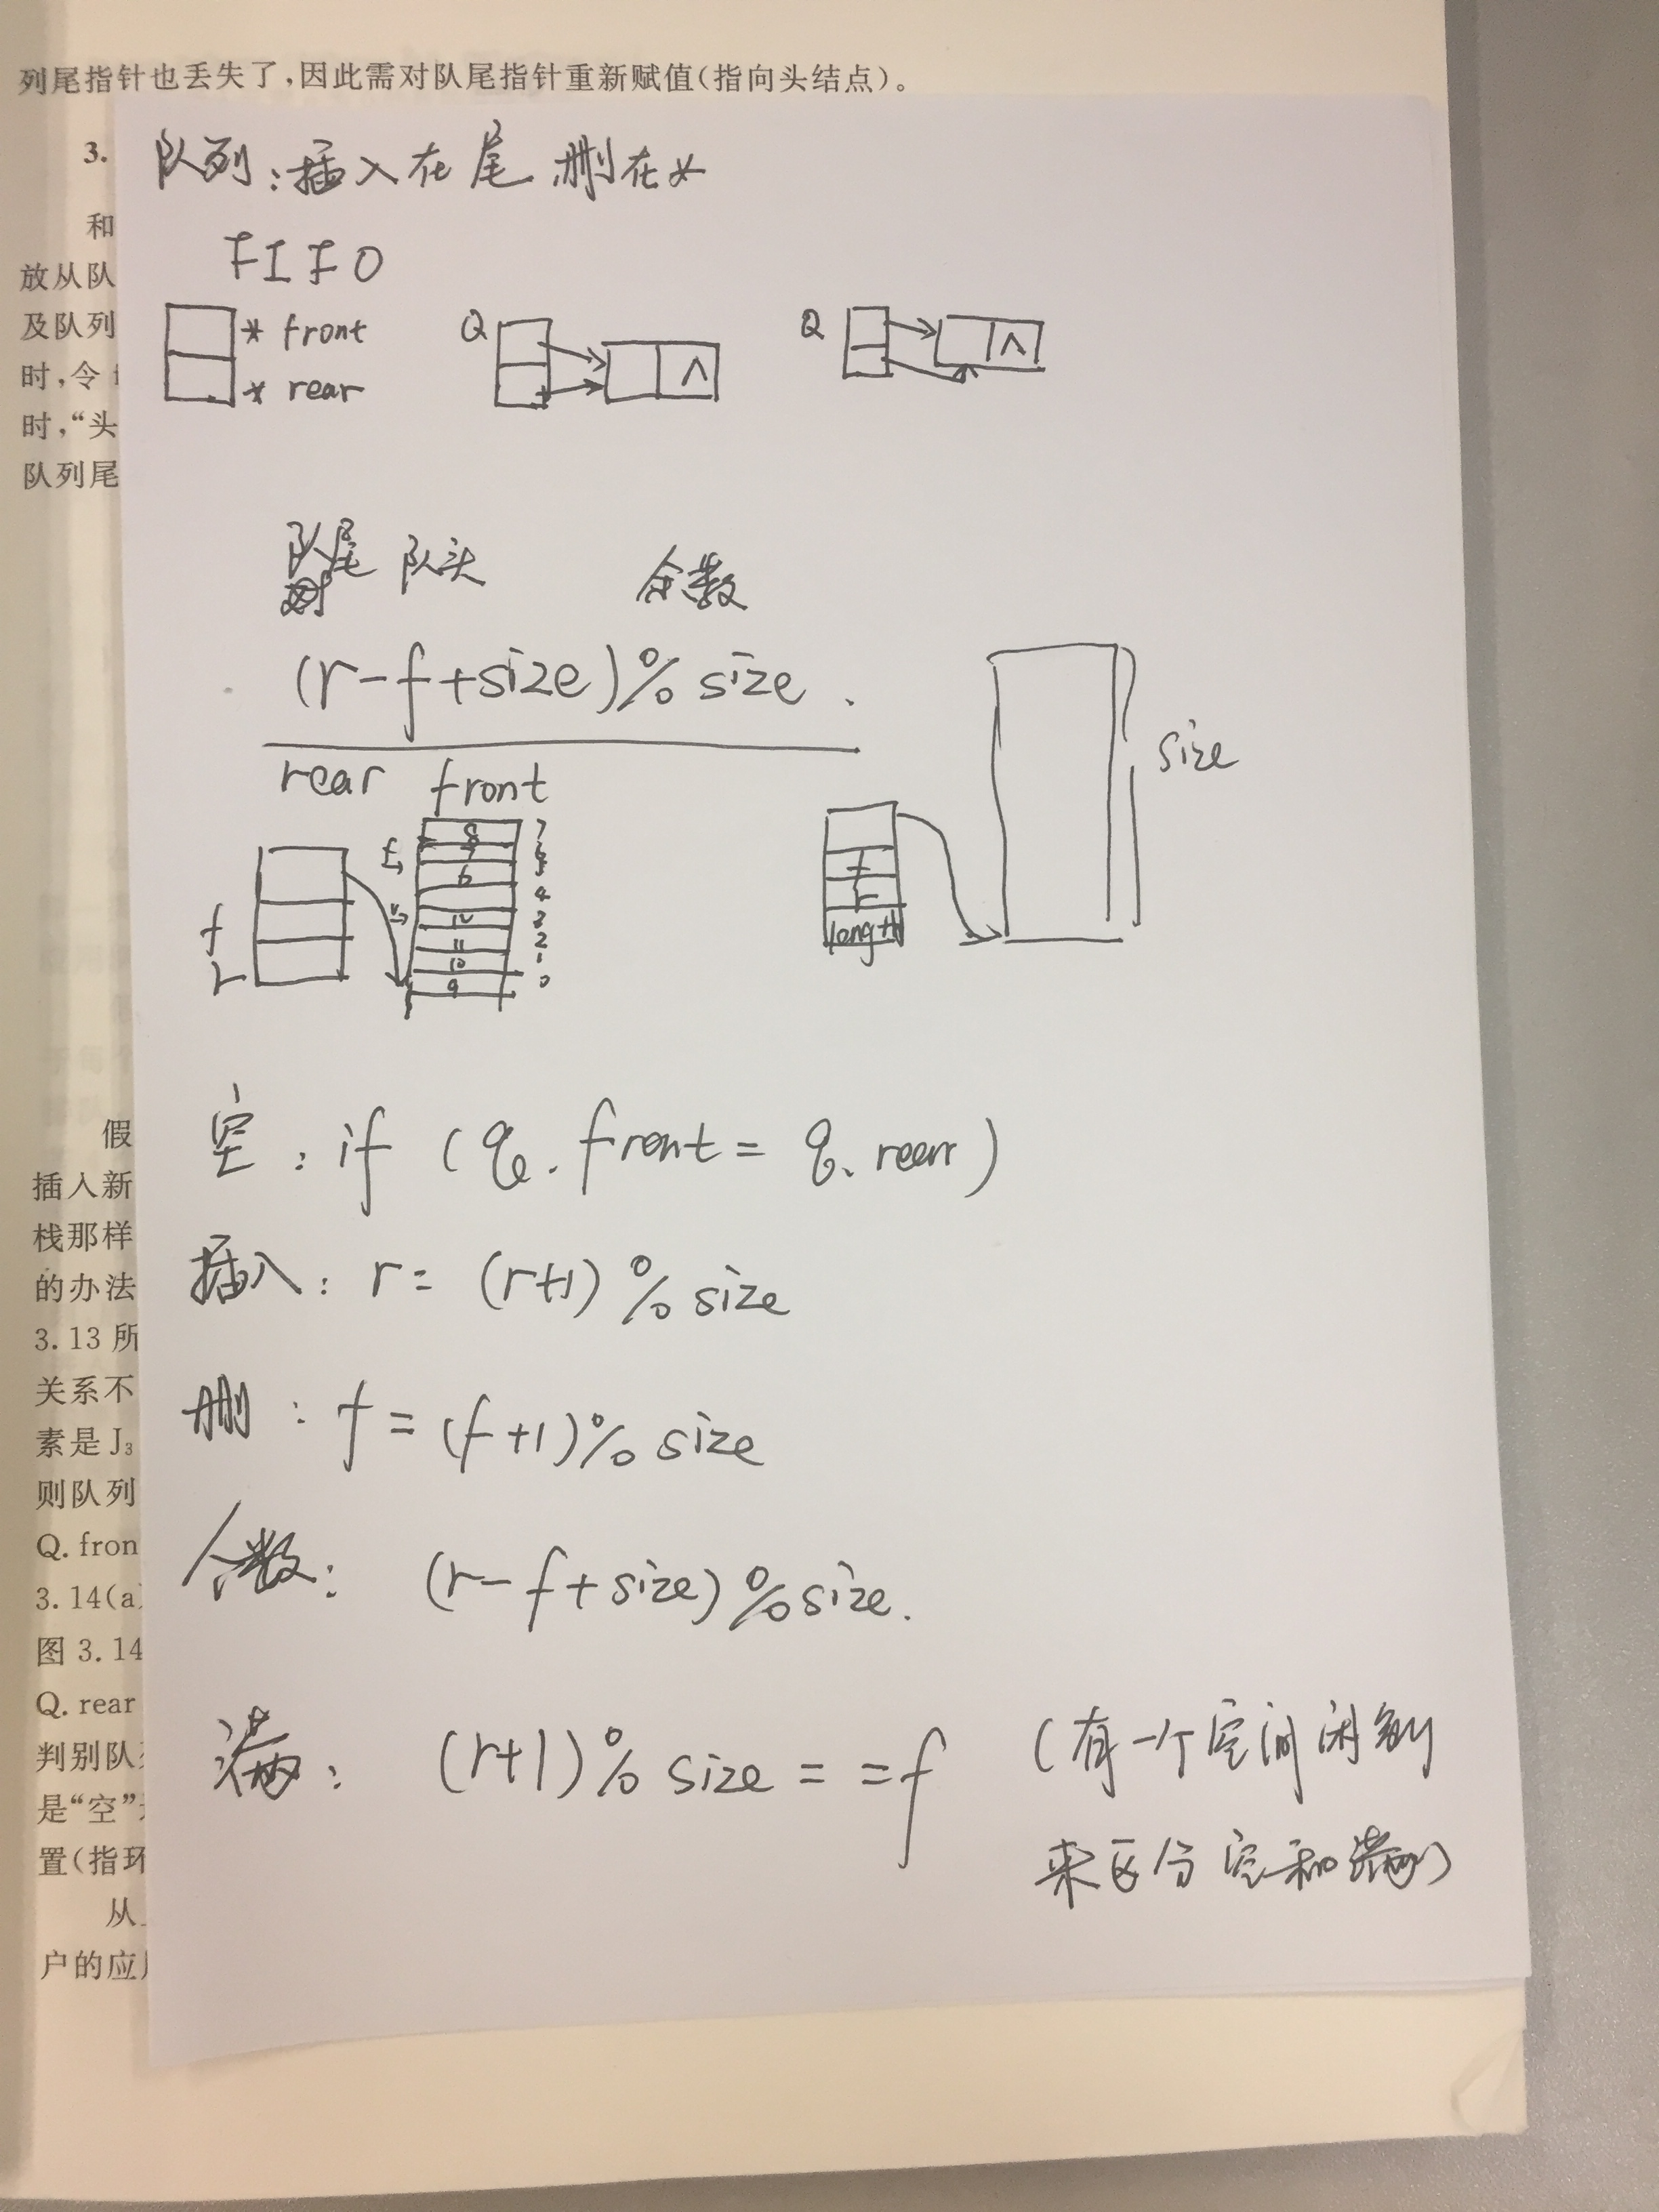 列尾指针也丢失了,因此需对队尾指针重新赋值(指向头结点)。
3.
队列:插入在尾 删在头
和
FIFO
放从队
及队列
* front
Q
Q
∧
∧
时,令
* rear
时,“头
队列尾
队尾 队头 余数
(r-f+size)%size.
size
rear front
f→
8
7
7
6
6
5
4
r→
12
3
11
2
10
1
9
0
f
r
f
r
length
空: if (q.front = q.rear)
假
插入新
插入: r= (r+1)%size
栈那样
的办法
3.13 所
删: f=(f+1)%size
关系不
素是 J₃
则队列
个数: (r-f+size)%size.
Q. fron
3.14(a)
图 3.14
Q. rear
满: (r+1)%size = =f (有一个空间闲余
判别队
是“空”
来区分空和满)
置(指环
从
户的应